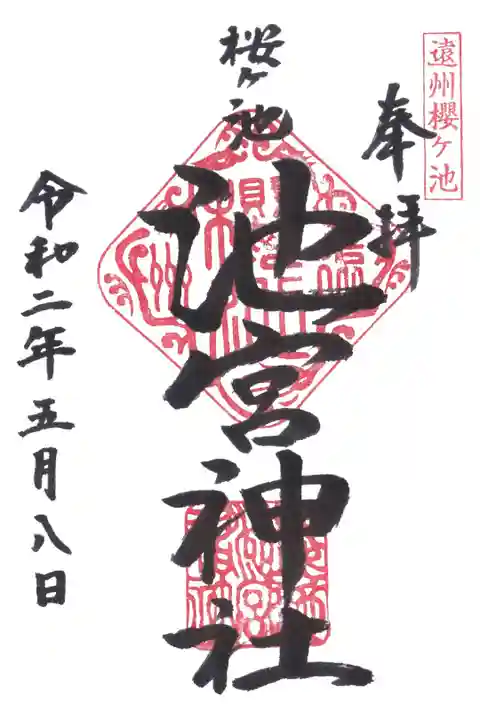 遠州櫻ケ池
奉拝
桜ヶ池
池宮神社
令和二年五月八日